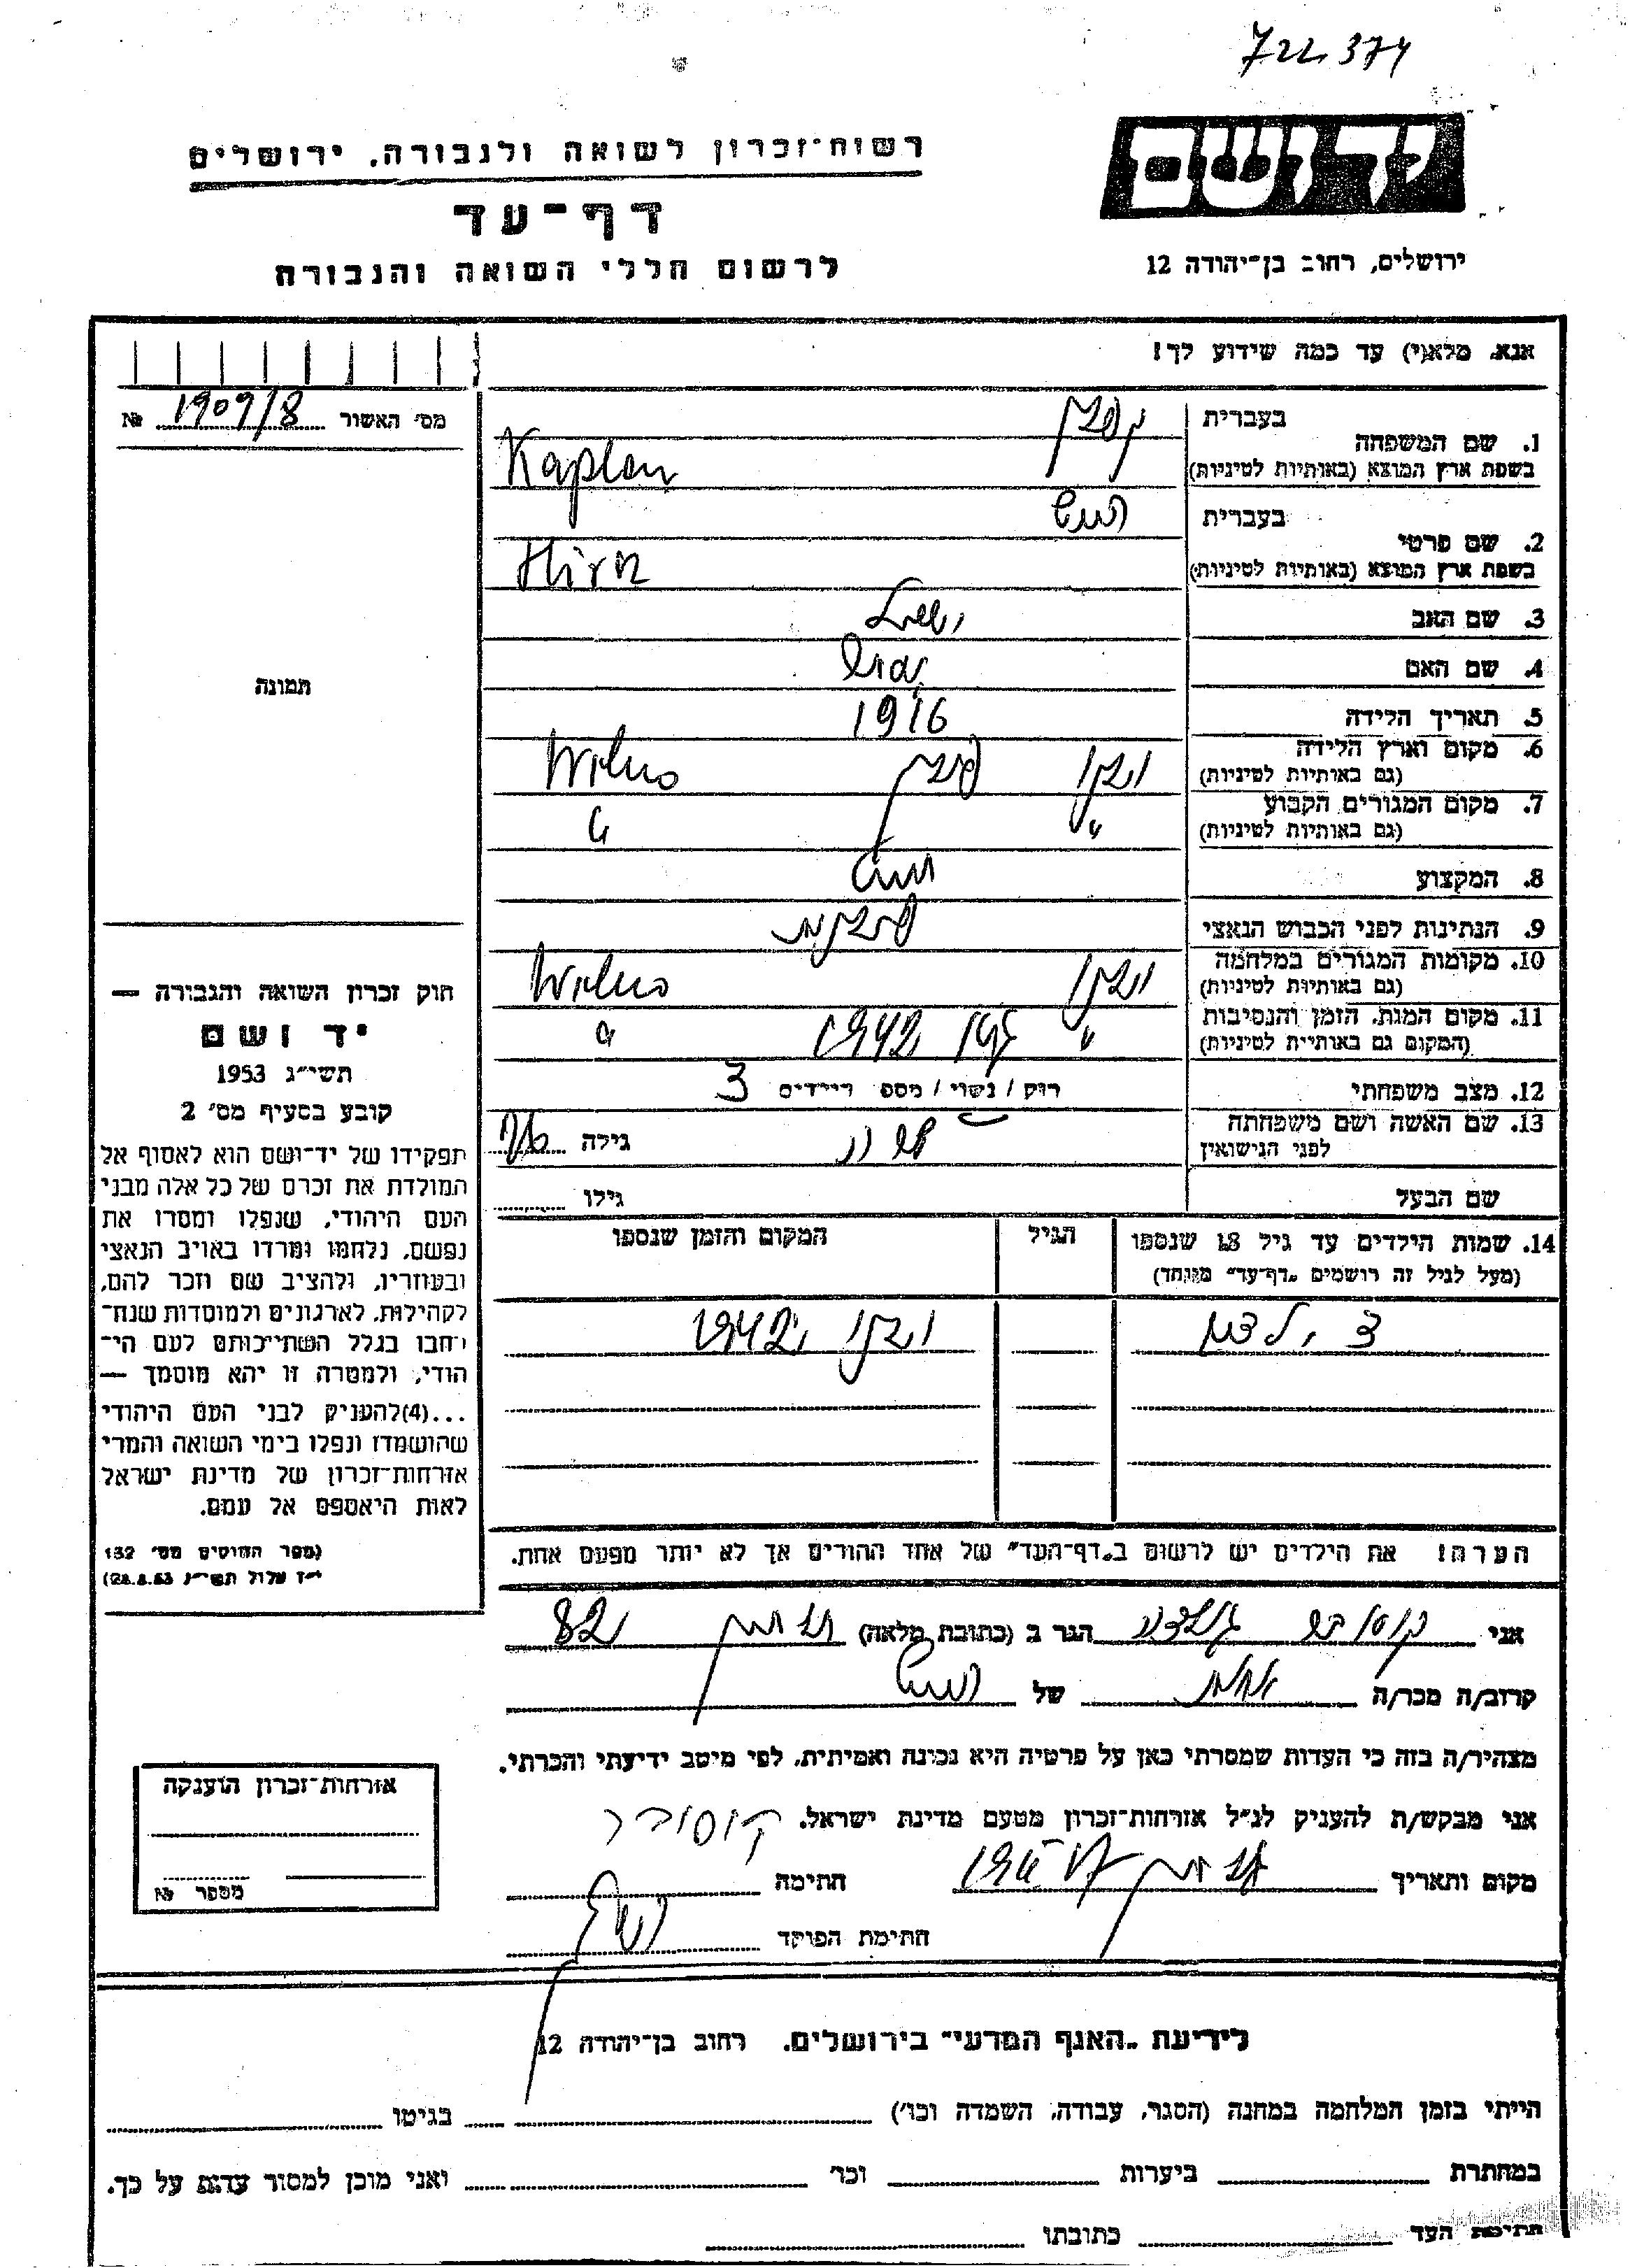 722.374
יד ושם
רשות־זכרון לשואה ולגבורה, ירושלים
דף־עד
לרשום חללי השואה והגבורה
ירושלים, רחוב בן־יהודה 12
אנא, מלא(י) עד כמה שידוע לך!
מס׳ האשור 1909/8 №
1. שם המשפחה
בעברית קפלן
בשפת ארץ המוצא (באותיות לטיניות) Kaplan
2. שם פרטי
בעברית הירש
בשפת ארץ המוצא (באותיות לטיניות) Hirn
3. שם האב
4. שם האם
5. תאריך הלידה 1916
6. מקום וארץ הלידה
(גם באותיות לטיניות) וילנו פולין Wilno
7. מקום המגורים הקבוע
(גם באותיות לטיניות) " "
8. המקצוע
9. הנתינות לפני הכבוש הנאצי פולנית
10. מקומות המגורים במלחמה
(גם באותיות לטיניות) וילנו Wilno
11. מקום המות, הזמן והנסיבות
(המקום גם באותיות לטיניות) " 1942 "
12. מצב משפחתי רוק / נשוי / מספ הילדים 3
13. שם האשה ושם משפחתה
לפני הנישואין גילה
שם הבעל גילו
14. שמות הילדים עד גיל 18 שנספו
(מעל לגיל זה רושמים „דף־עד״ מיוחד)
הגיל
המקום והזמן שנספו
3 ילדים וילנו 1942
הערה! את הילדים יש לרשום ב„דף־העד״ של אחד ההורים אך לא יותר מפעם אחת.
תמונה
חוק זכרון השואה והגבורה —
יד ושם
תשי״ג 1953
קובע בסעיף מס׳ 2
תפקידו של יד־ושם הוא לאסוף אל
המולדת את זכרם של כל אלה מבני
העם היהודי, שנפלו ומסרו את
נפשם, נלחמו ומרדו באויב הנאצי
ובעוזריו, ולהציב שם וזכר להם,
לקהילות, לארגונים ולמוסדות שנח־
רבו בגלל השתייכותם לעם הי־
הודי, ולמטרה זו יהא מוסמך —
...(4)להעניק לבני העם היהודי
שהושמדו ונפלו בימי השואה והמרי
אזרחות־זכרון של מדינת ישראל
לאות היאספם אל עמם.
(ספר החוקים מס׳ 132
י״ז אלול תשי״ג 28.8.53)
אני הגר ב (כתובת מלאה) 82
קרוב/ה מכר/ה של הירש
מצהיר/ה בזה כי העדות שמסרתי כאן על פרטיה היא נכונה ואמיתית, לפי מיטב ידיעתי והכרתי.
אני מבקש/ת להעניק לנ״ל אזרחות־זכרון מטעם מדינת ישראל.
מקום ותאריך חתימה
חתימת הפוקד
אזרחות־זכרון הוענקה
מספר №
לידיעת „האגף המדעי״ בירושלים, רחוב בן־יהודה 12
הייתי בזמן המלחמה במחנה (הסגר, עבודה, השמדה וכו׳) בגיטו
במחתרת ביערות וכו׳ ואני מוכן למסור עדות על כך.
חתימת העד כתובתו